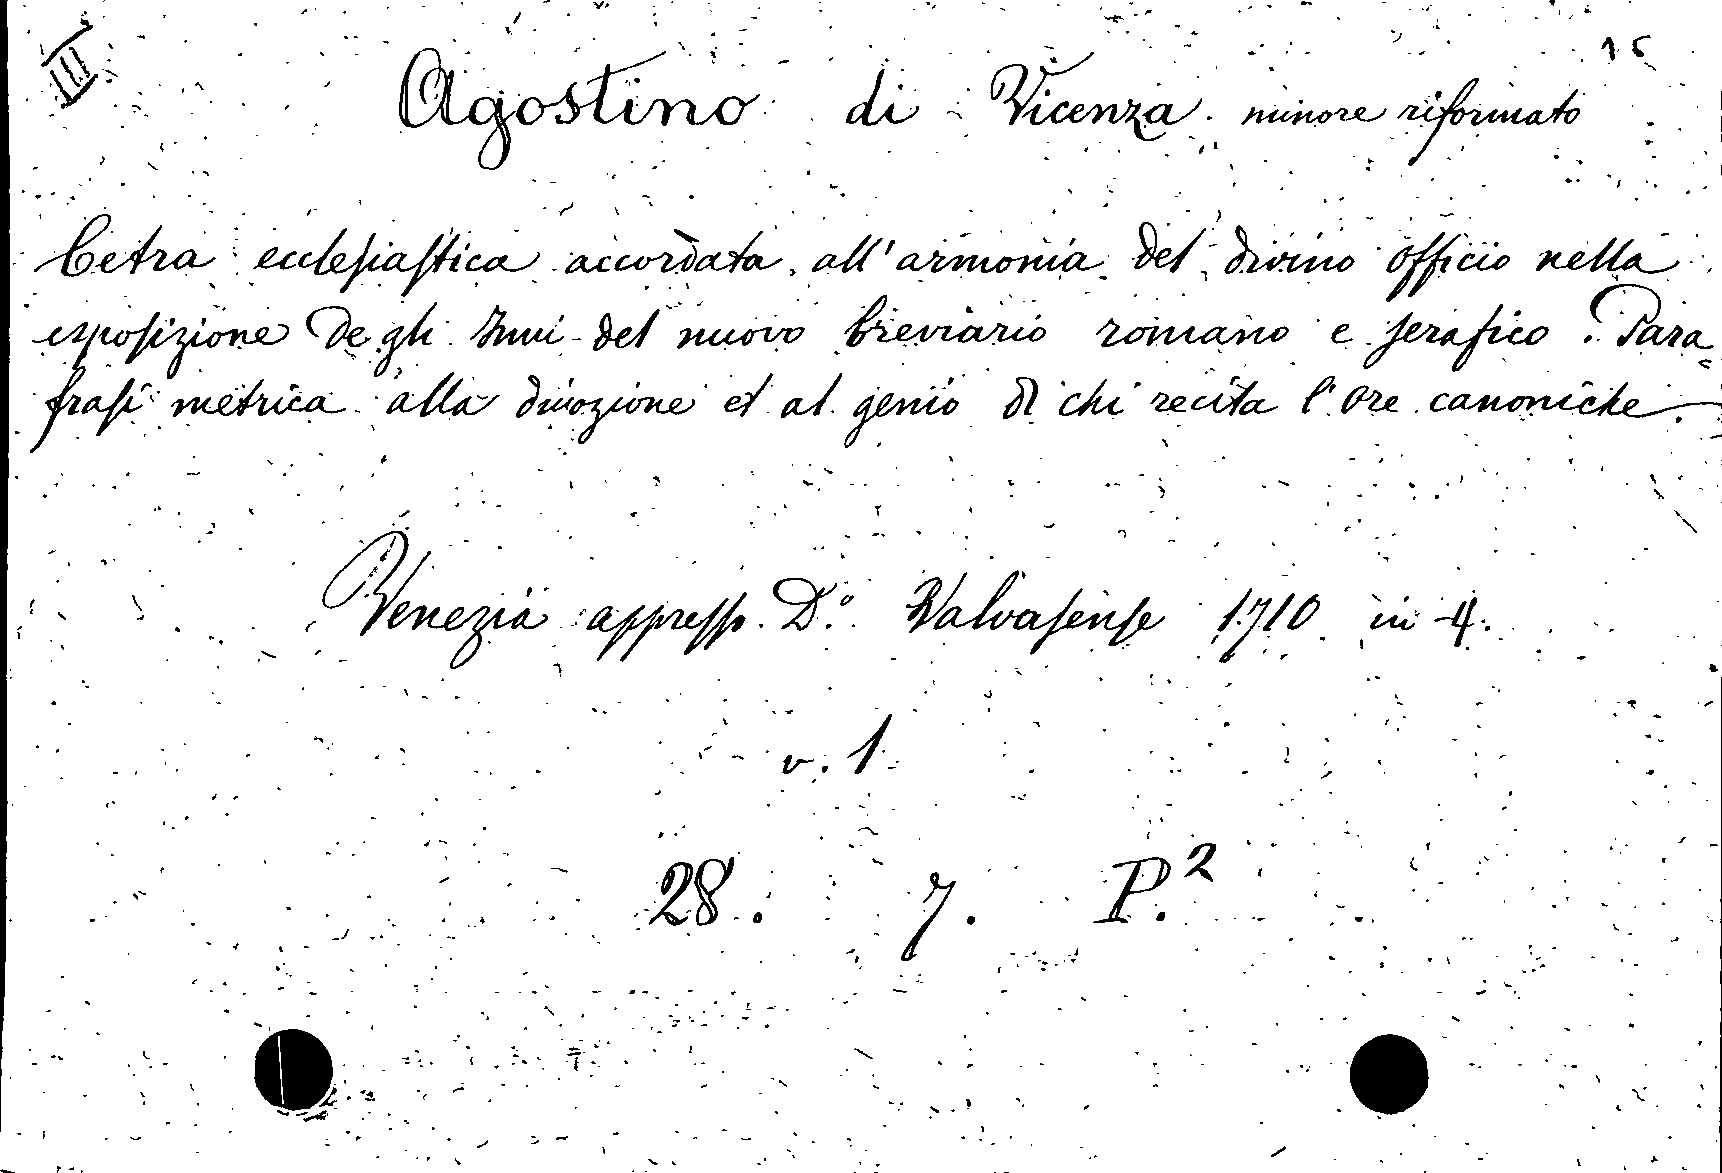 III
15
Agostino di Vicenza. minore riformato
Cetra ecclesiastica accordata all'armonia del divino officio nella
esposizione de gli Inni del nuovo breviario romano e serafico. Para=
frasi metrica alla divozione et al genio di chi recita l'Ore canoniche.
Venezia appresso D.º Valvasense 1710 in 4.
v. 1
28. 7. P.²